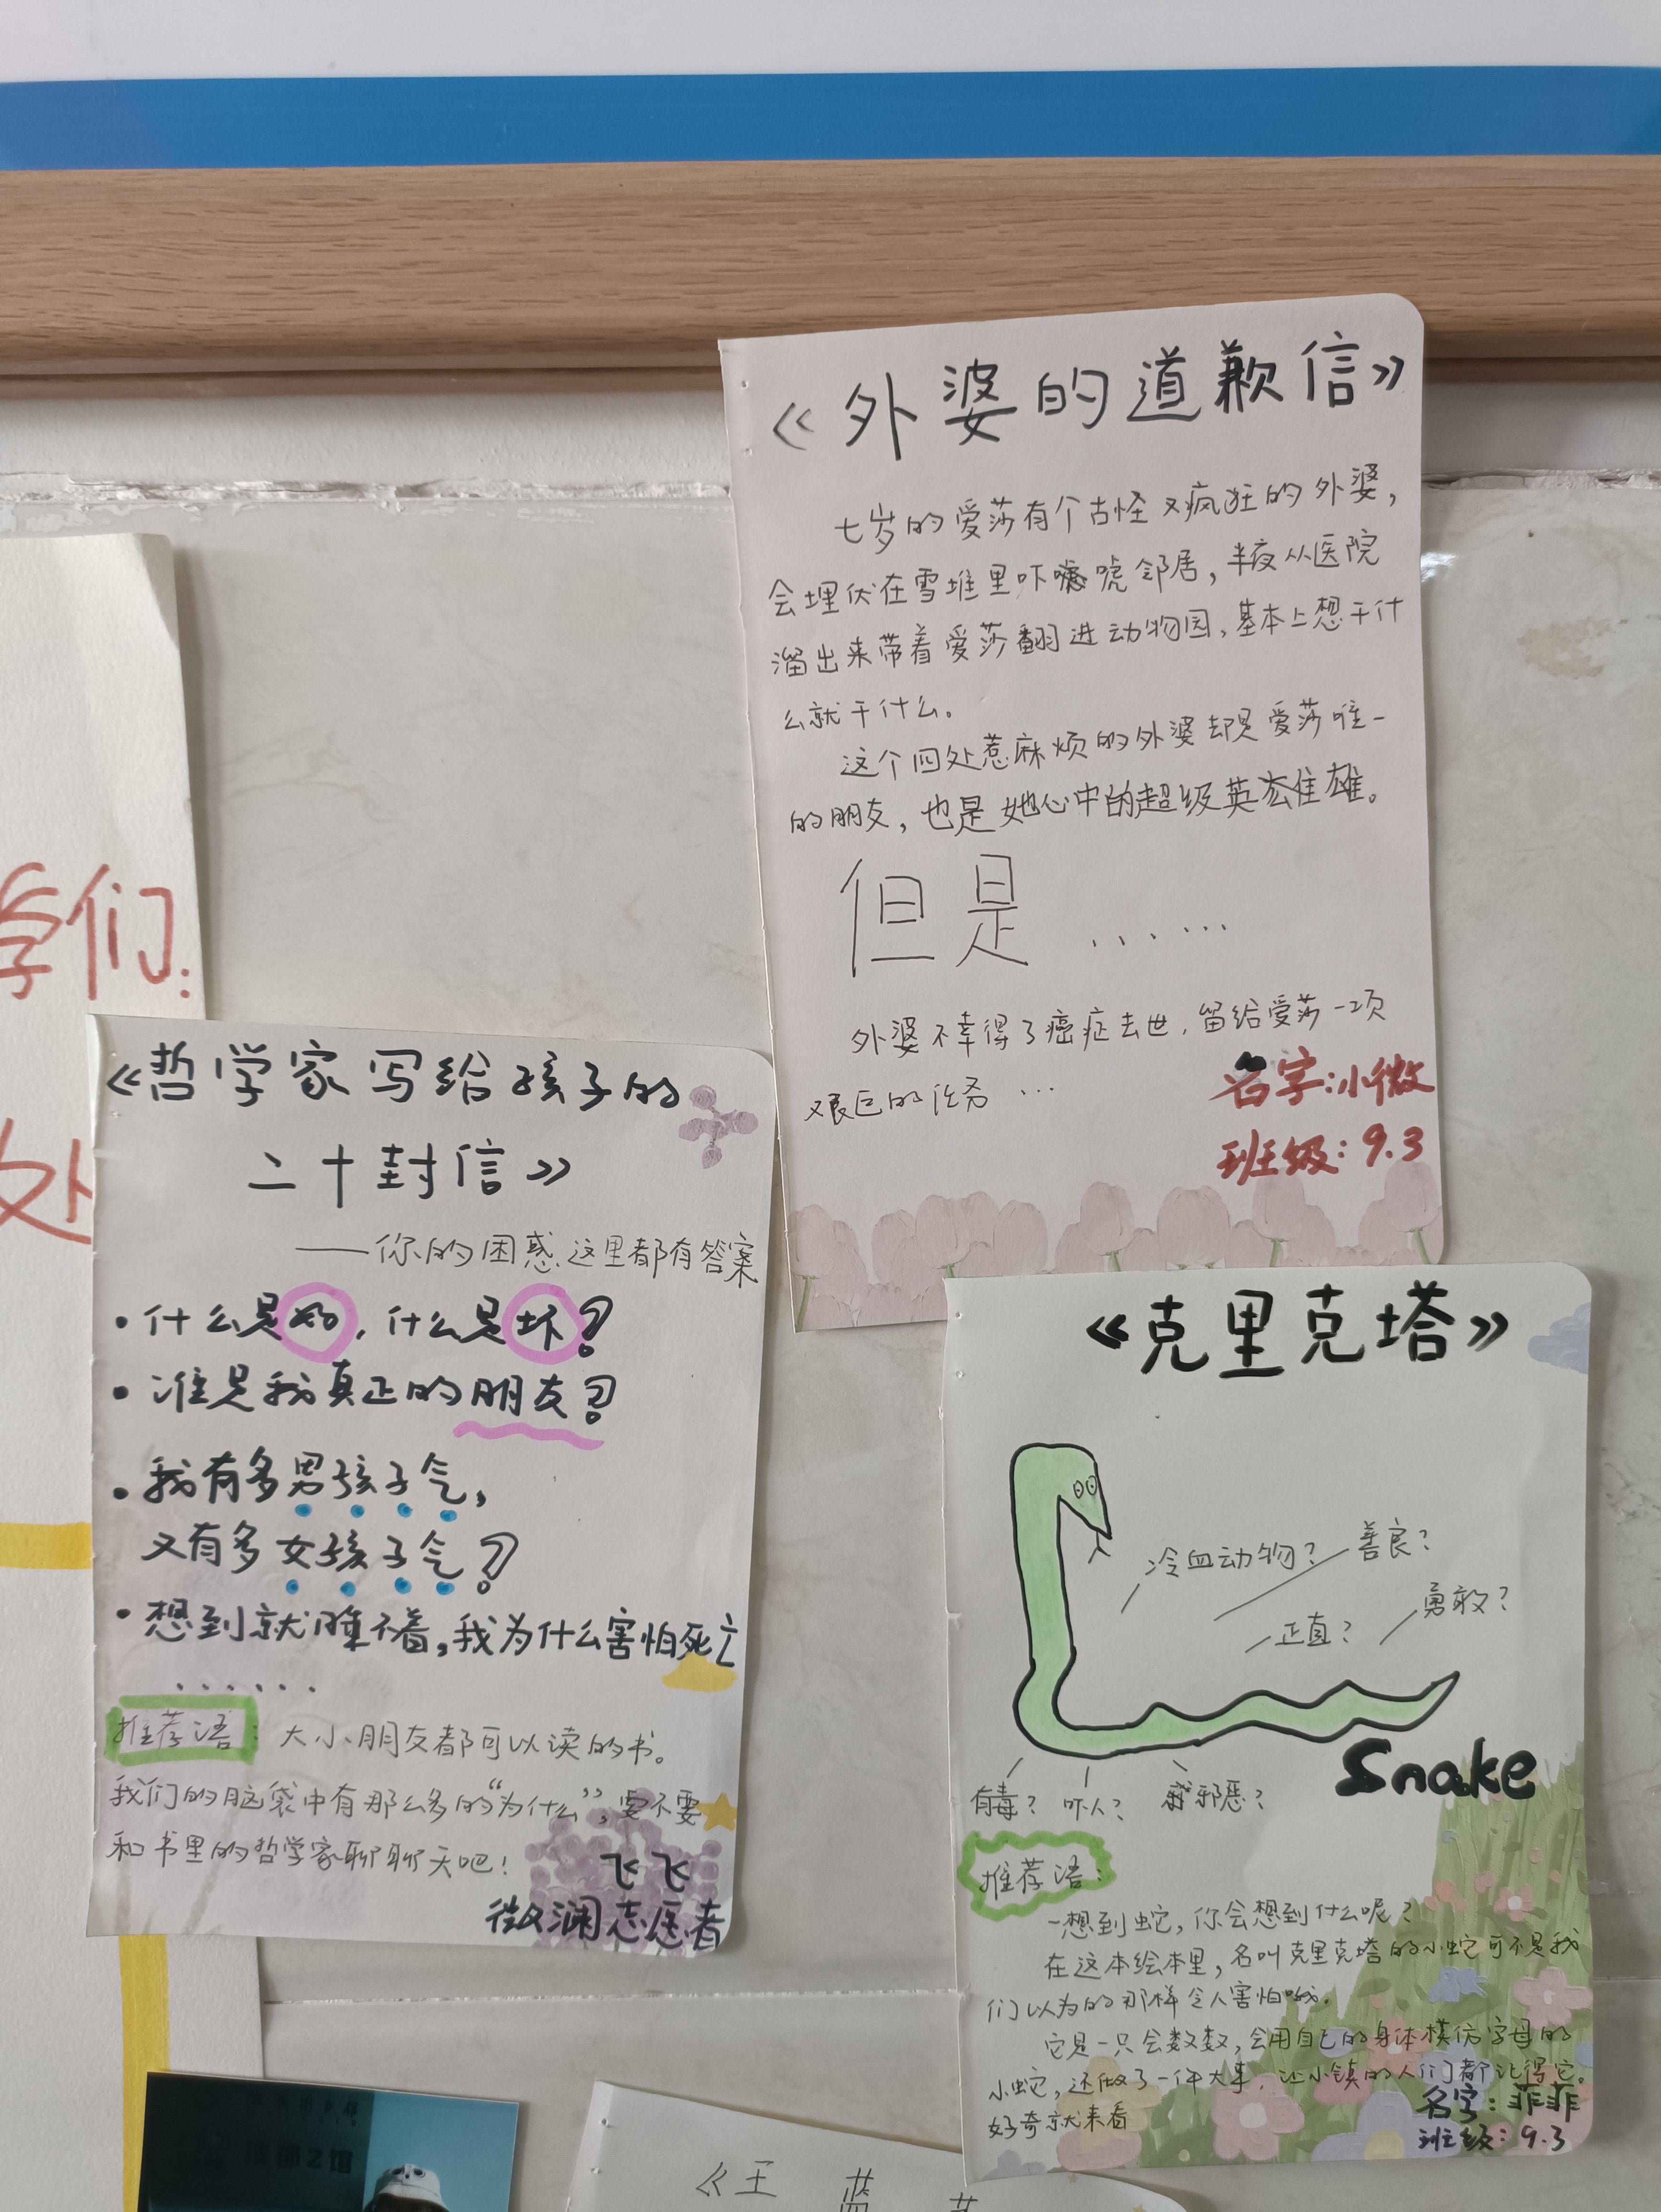 《外婆的道歉信》
七岁的爱莎有个古怪又疯狂的外婆，
会埋伏在雪堆里吓唬邻居，半夜从医院
溜出来带着爱莎翻进动物园，基本上想干什
么就干什么。
这个四处惹麻烦的外婆却是爱莎唯一
的朋友，也是她心中的超级英雄。
但是……
外婆不幸得了癌症去世，留给爱莎一项
艰巨的任务…
名字：小微
班级：9.3
学们：
处
《哲学家写给孩子的
二十封信》
——你的困惑这里都有答案
·什么是好，什么是坏？
·谁是我真正的朋友？
·我有多男孩子气，
又有多女孩子气？
·想到就睡不着，我为什么害怕死亡
……
推荐语：大小朋友都可以读的书。
我们的脑袋中有那么多的“为什么”，要不要
和书里的哲学家聊聊天吧！
飞飞
微澜志愿者
《克里克塔》
冷血动物？
善良？
正直？
勇敢？
Snake
有毒？
吓人？
邪恶？
推荐语：
一想到蛇，你会想到什么呢？
在这本绘本里，名叫克里克塔的小蛇可不是我
们以为的那样令人害怕哦。
它是一只会数数，会用自己的身体模仿字母的
小蛇，还做了一件大事，让小镇的人们都记得它。
好奇就来看
名字：菲菲
班级：9.3
《王 蓝